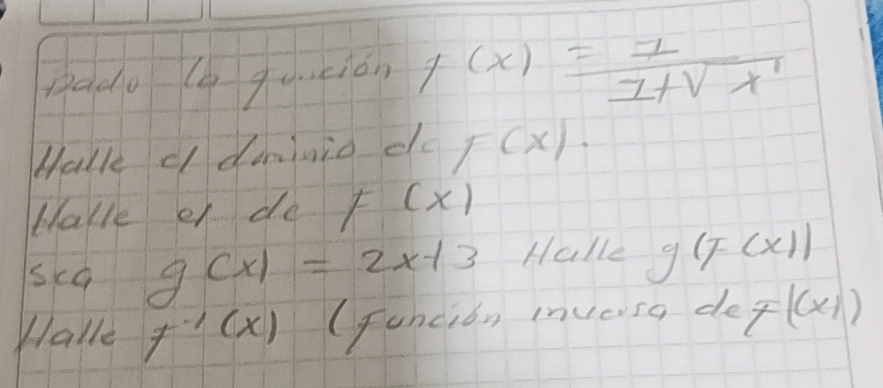 Dado la función f(x) = 1/(1+√x)
Halle el dominio de f(x).
Halle el de f(x)
sea g(x) = 2x+3 Halle g(f(x))
Halle f⁻¹(x) (función inversa de f(x))